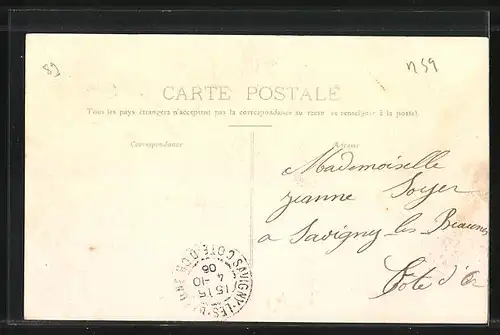 89
n59
CARTE POSTALE
Tous les pays étrangers n'acceptent pas la correspondance au recto se renseigner à la poste.
Correspondance
Adresse
Mademoiselle
Jeanne Soyer
a Savigny-les Beaunes
Cote d'Or
SAVIGNY-LES- COTE D'OR
15 15
4 -10
06